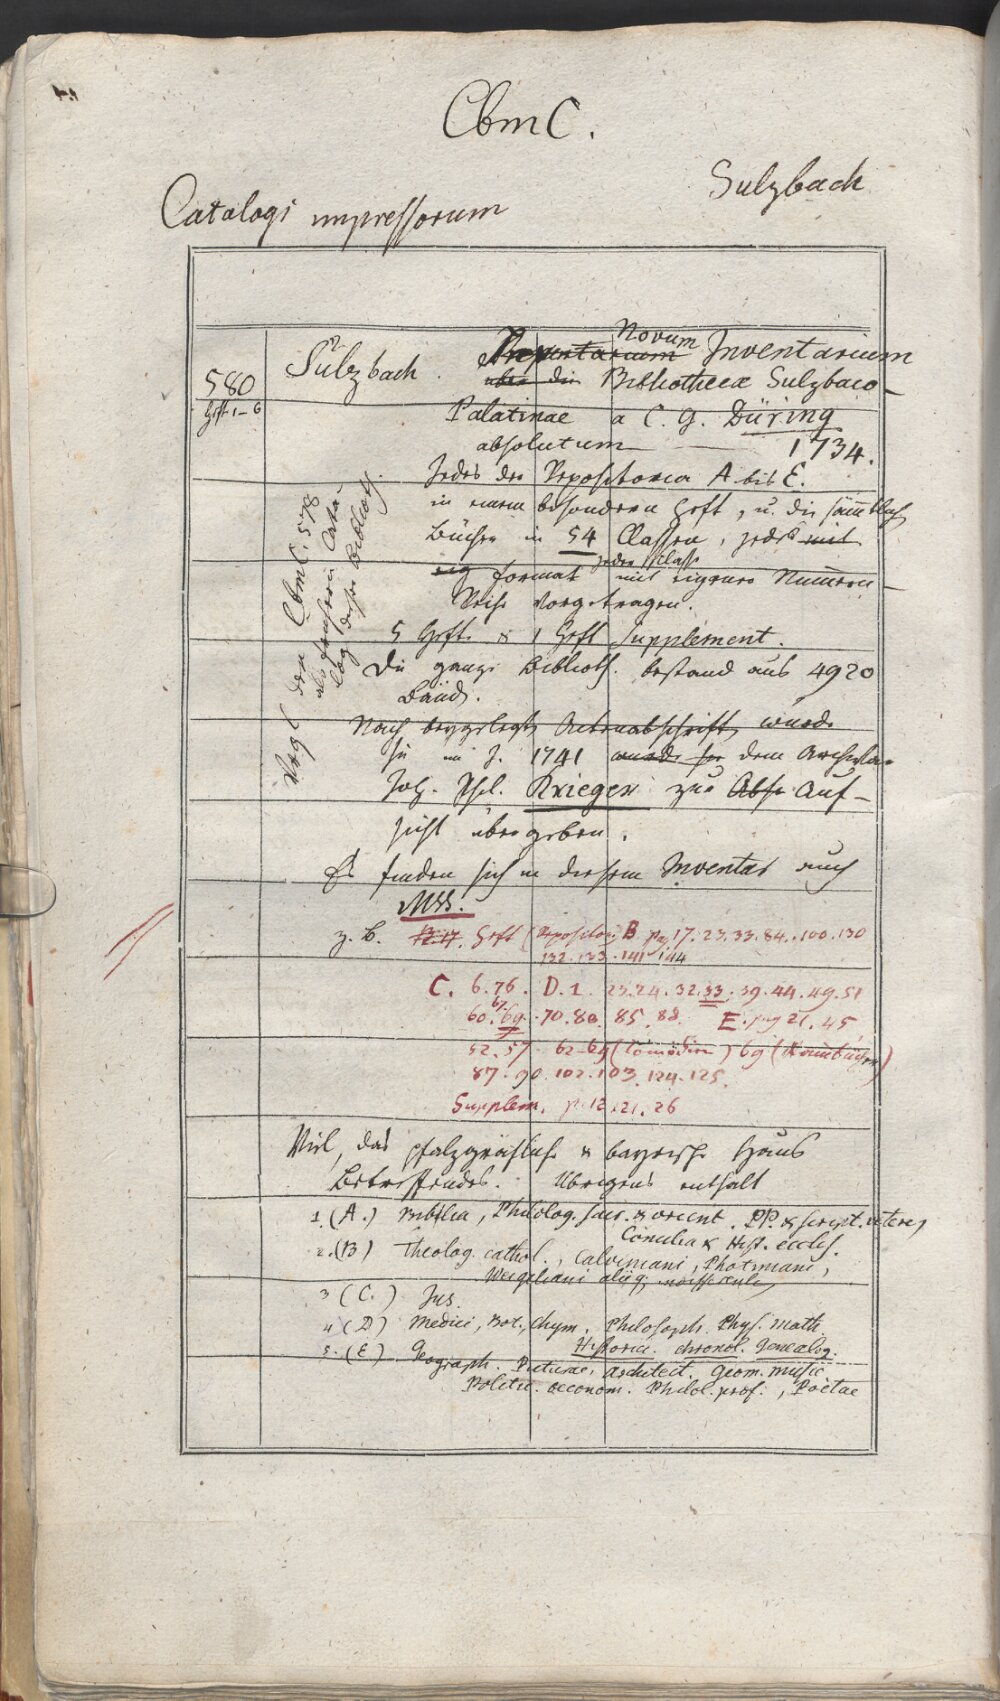 CbmC.
Sulzbach
Catalogi impressorum
580
Heft 1-6
Sulzbach. Inventarium Novum Inventarium
über die Bibliothecæ Sulzbaco-
Palatinae a C. G. Düring
absolutum — 1734.
Jedes der Repositorien A bis E.
in einem besondern Heft, u. die sämtlich
Bücher in 54 Classen, jedes mit
eig Format jeder Classe mit eigener Numern-
Reihe vorgetragen.
5 Hefte & 1 Heft Supplement.
Die ganze Biblioth. bestand aus 4920
Bänd.
Nach beygelegter Actenabschrift wurde
sie im J. 1741 wurde sie dem Archivar
Joh. Phil. Krieger zur Abs Auf-
sicht übergeben.
Es finden sich in diesem Inventar auch
MSS.
z. B. Heft (Repositori B pag 17. 23. 33. 84. 100. 130
132. 133. 141. 144
C. 6. 76. D. 1. 23. 24. 32. 33. 39. 44. 49. 51
60. 67. 69. 70. 80. 85. 88. E. pag 21. 45
52. 57. 62-64 (Comödien) 69
87. 90. 102. 103. 124. 125.
Supplem. p. 12. 21. 26
Viel, das pfalzgräfliche & bayrische Haus
Betreffendes. Übrigens enthält
1. (A.) Biblia, Philolog. sacr. & orient. PP. & script. veteres
Concilia & Hist. eccles.
2. (B) Theolog. cathol., Calviniani, Photiniani,
Weigeliani aliiq.
3 (C.) Jus.
4 (D) Medici, Bot., Chym. Philosoph. Phys. Math.
Historici. chronol. Genealog.
5. (E) Geograph. Picturae, Architect. Geom. Music
Politic. oeconom. Philol. prof., Poetae
Vergl. den CbmC. 578
als frühern Cata-
log dieser Biblioth.